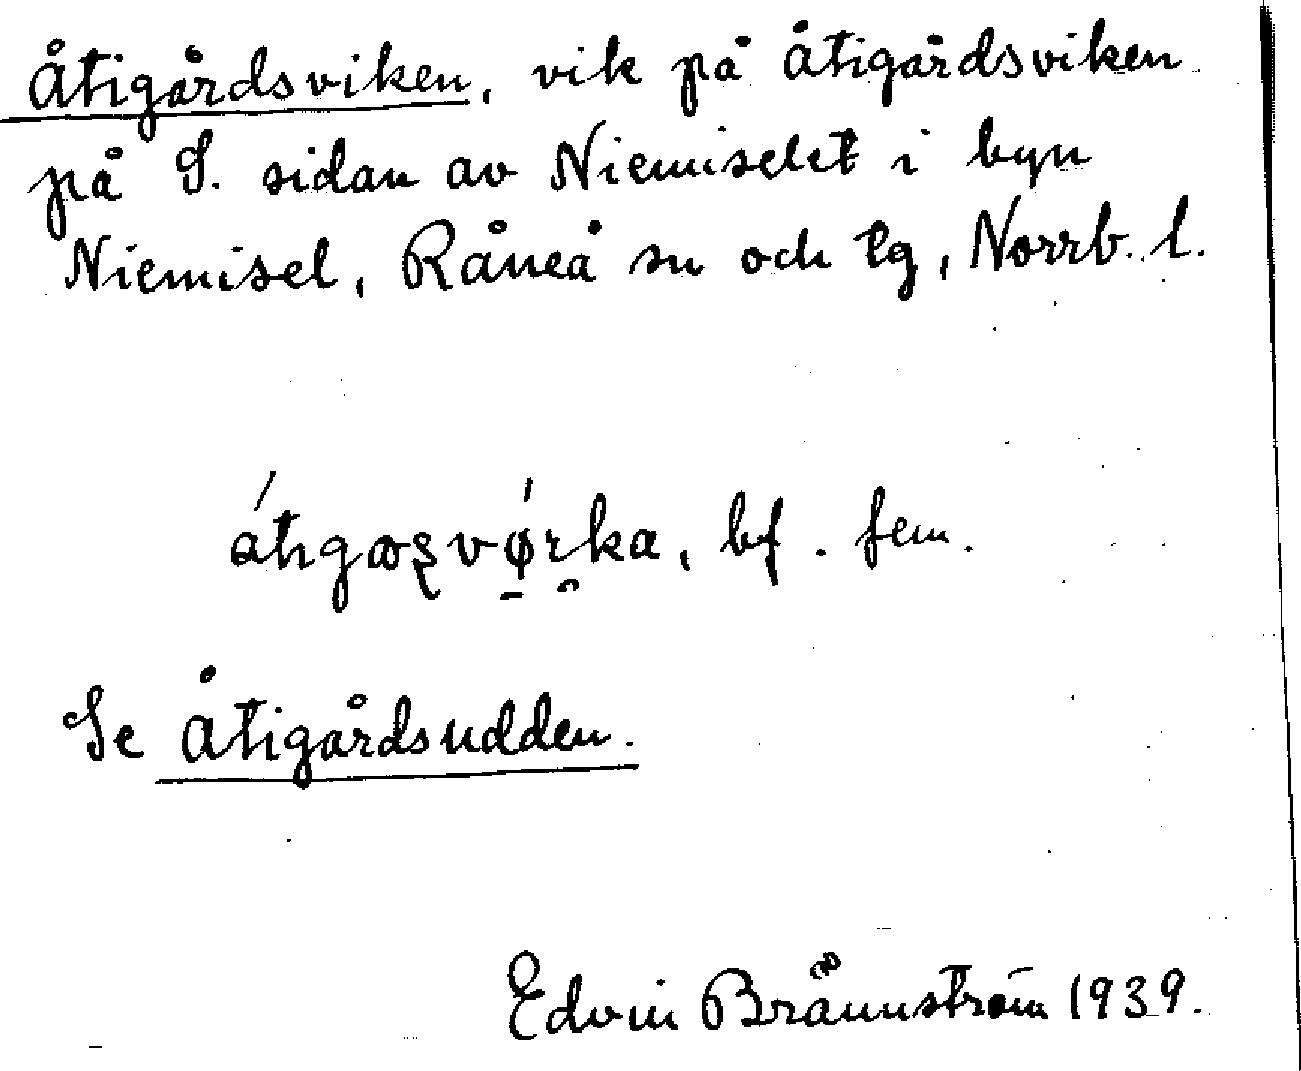 Åtigårdsviken, vik på Åtigårdsviken
på S. sidan av Niemiselet i byn
Niemisel, Råneå sn och tg, Norrb. l.
bf. fem.
Se Åtigårdsudden.
Edvin Brännström 1939.